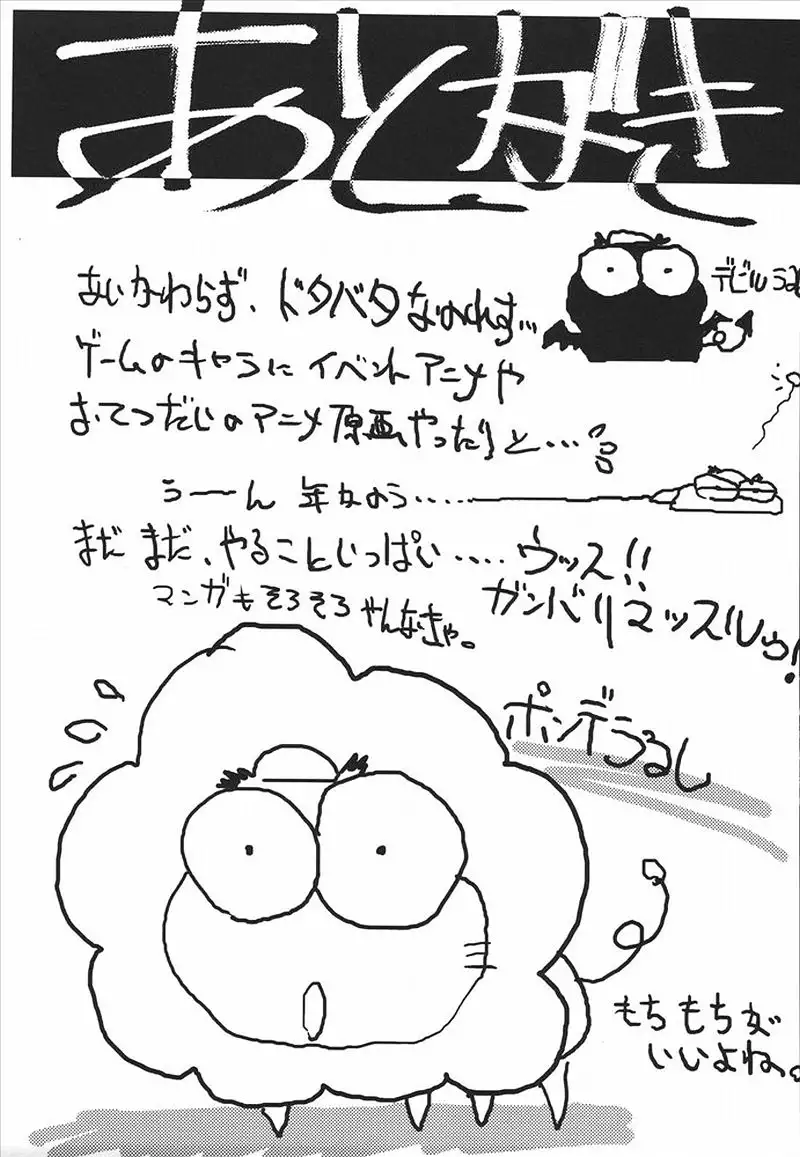 あとがき
あいかわらず、ドタバタなのれす…
デビルうるし
ゲームのキャラに イベントアニメや
おてつだいのアニメ原画やったりと…
うーーん 年かのう……
まだまだ、やること いっぱい…… ウッス!!
マンガも そろそろ やんなきゃ。
ガンバリマッスルゥ!
ポンデうるし
もちもちが
いいよね。